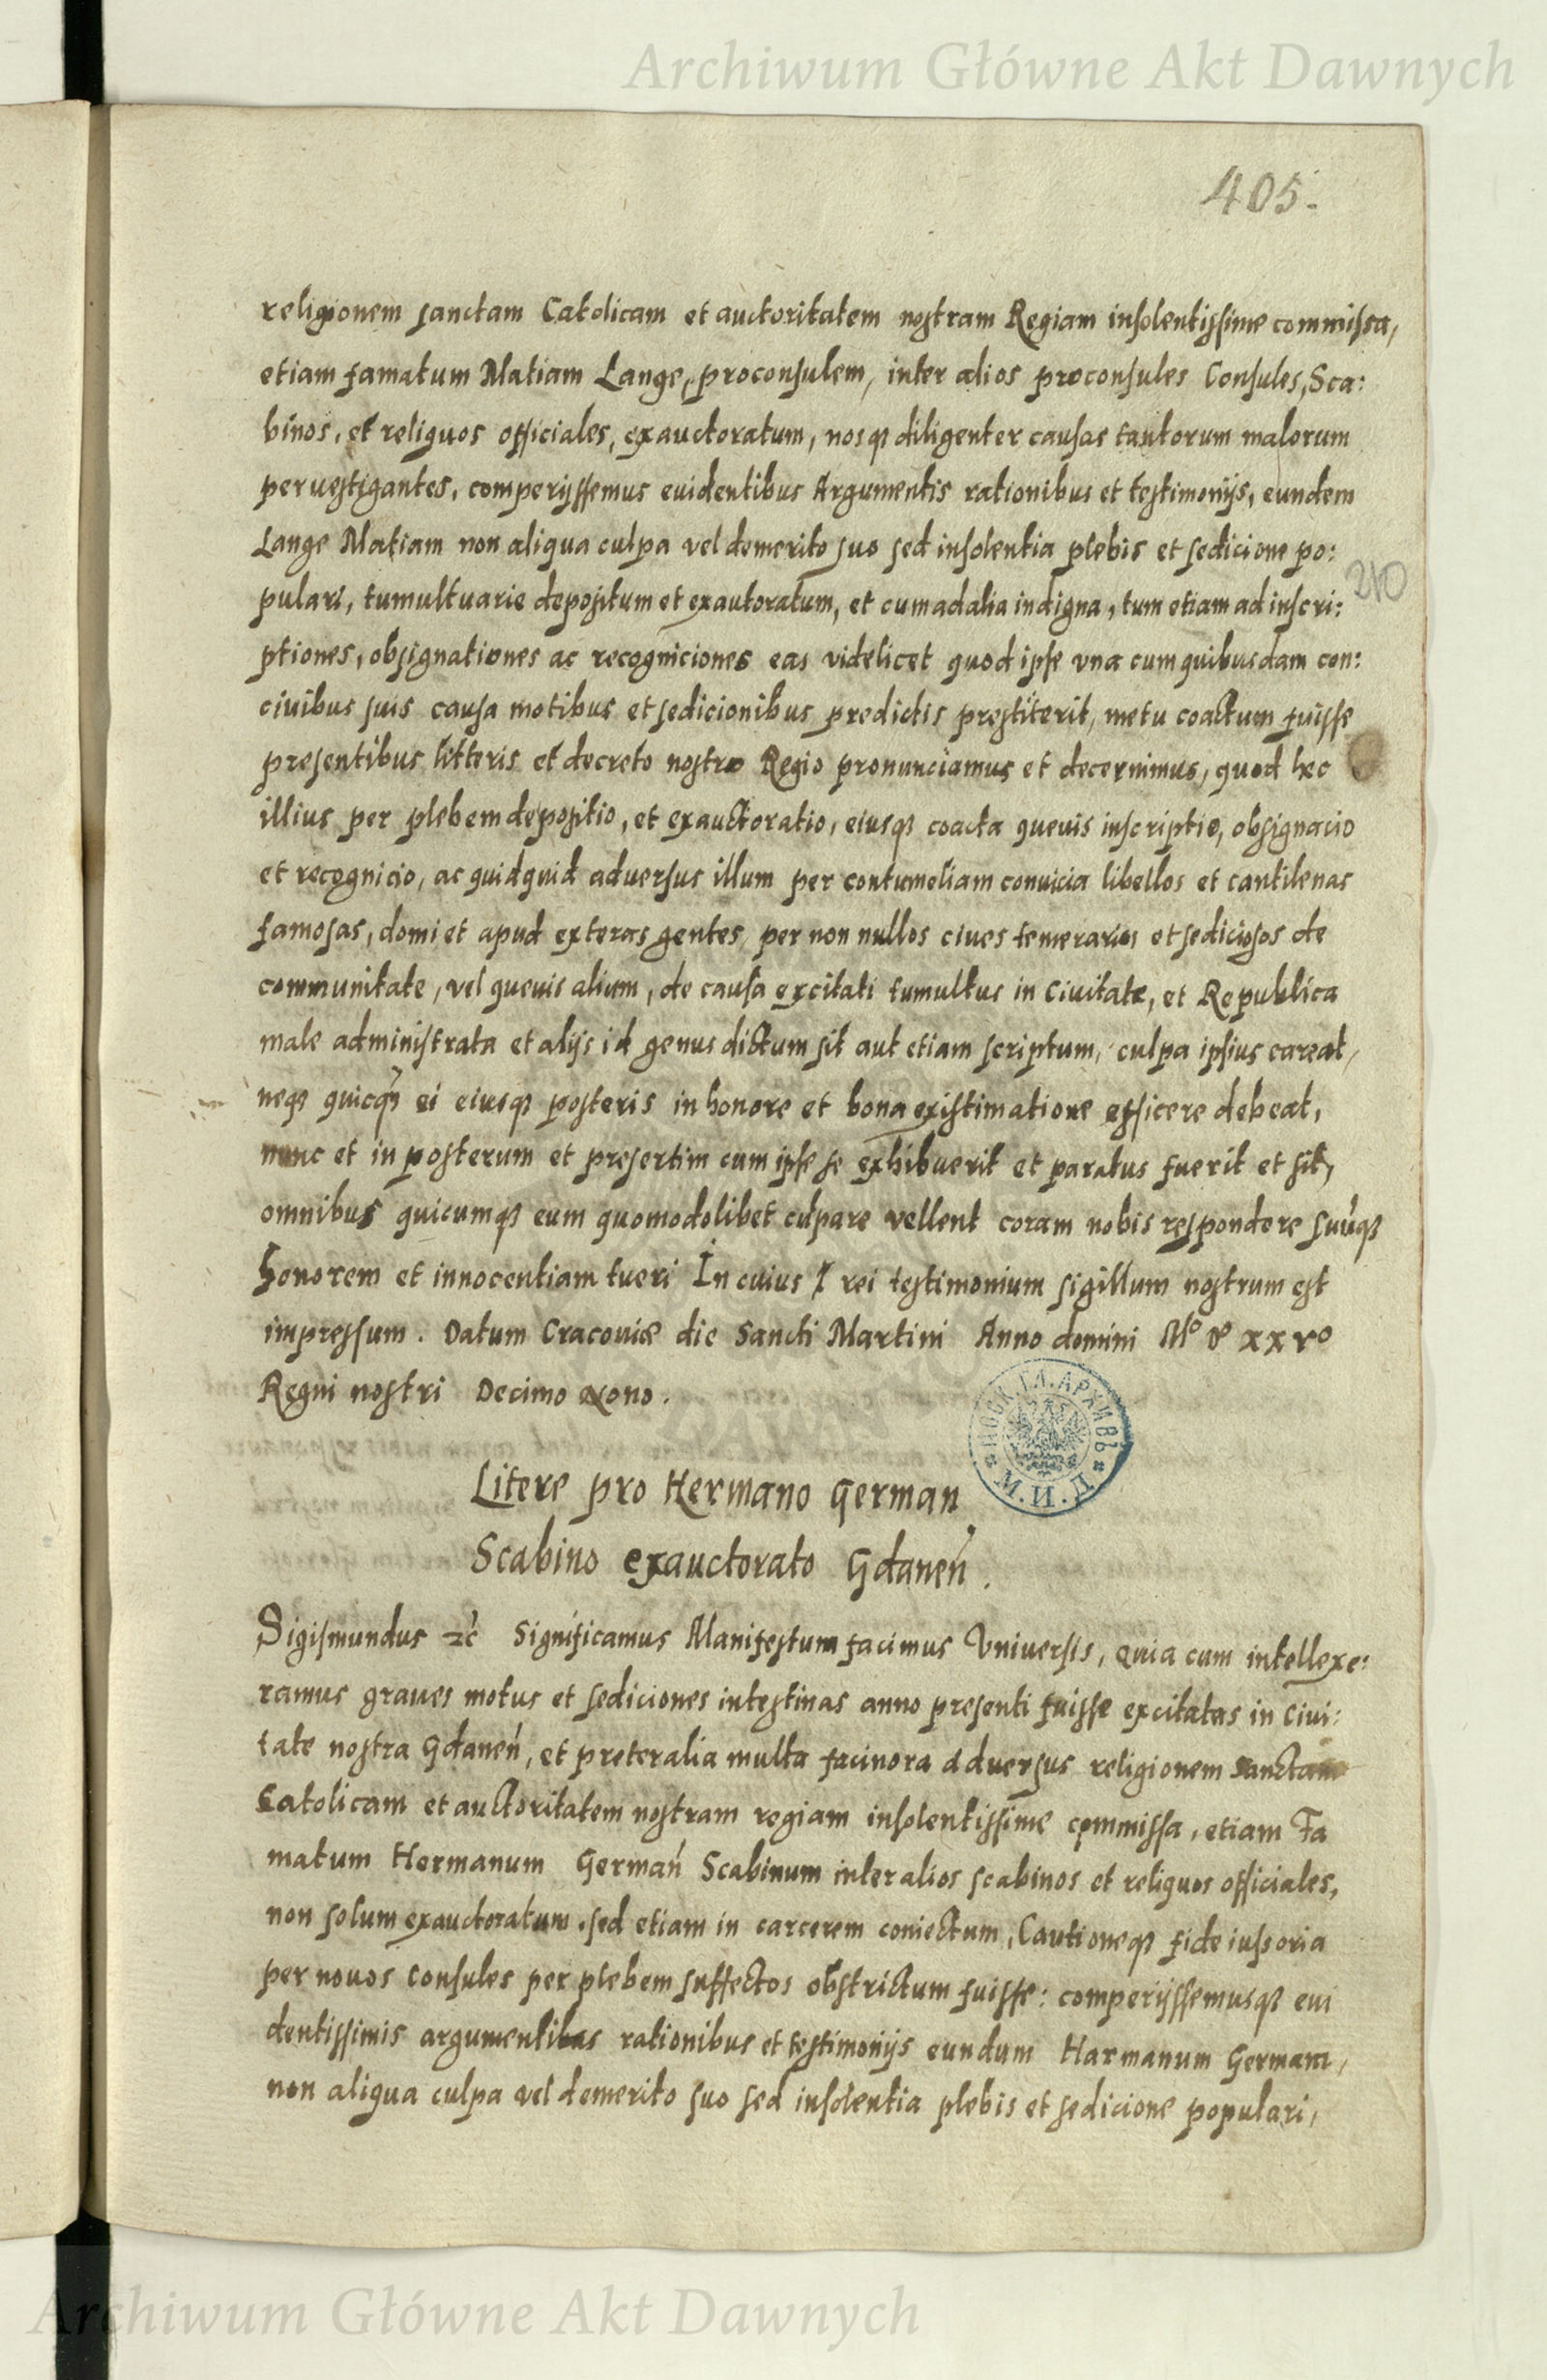 Archiwum Główne Akt Dawnych
405.
religionem sanctam Catolicam et auctoritatem nostram Regiam insolentissime commissa,
etiam famatum Matiam Lange, proconsulem, inter alios proconsules Consules, Sca:
binos, et reliquos officiales, exauctoratum, nosq3 diligenter causas tantorum malorum
pervestigantes, comperijssemus evidentibus Argumentis rationibus et testimonijs, eundem
Lange Matiam non aliqua culpa vel demerito suo sed insolentia plebis et sedicione po:
pulari, tumultuarie depositum et exautoratum, et cum ad alia indigna, tum etiam ad inscri:
210
ptiones, obsignationes ac recogniciones eas videlicet quod ipse vna cum quibusdam con:
civibus suis causa motibus et sedicionibus predictis prestiterit, metu coactum fuisse
presentibus litteris et decreto nostro Regio pronunciamus et decernimus, quod hec
illius per plebem depositio, et exauctoratio, eiusq3 coacta quevis inscriptio, obsignacio
et recognicio, ac quidquid adversus illum per contumeliam convicia libellos et cantilenas
famosas, domi et apud exteras gentes, per non nullos cives temerarios et sediciosos de
communitate, vel quemvis alium, de causa excitati tumultus in Civitate, et Republica
male administrata et alijs id genus dictum sit aut etiam scriptum, culpa ipsius careat,
neq3 quicq̃ ei eiusq3 posteris in honore et bona existimatione efficere debeat,
nunc et in posterum et presertim cum ipse se exhibuerit et paratus fuerit et sit,
omnibus quicumq3 eum quomodolibet culpare vellent coram nobis respondere suũq3
honorem et innocentiam tueri In cuius rei testimonium sigillum nostrum est
impressum. Datum Cracoviæ die Sancti Martini Anno domini Mº Dº xxvº
Regni nostri Decimo Nono.
МОСК.ГЛ.АРХИВЪ * М.И.Д. *
Litere pro Hermano German
Scabino exauctorato Gdaneń.
Sigismundus etc Significamus Manifestum facimus Vniversis, Quia cum intellexe:
ramus graves motus et sediciones intestinas anno presenti fuisse excitatas in Civi:
tate nostra Gdaneń, et preter alia multa facinora adversus religionem sanctam
Catolicam et auctoritatem nostram regiam insolentissime commissa, etiam Fa
matum Hermanum Germań Scabinum inter alios scabinos et reliquos officiales,
non solum exauctoratum, sed etiam in carcerem coniectum, Cautioneq3 fideiussoria
per novos Consules per plebem suffectos obstrictum fuisse: comperijssemusq3 evi
dentissimis argumentibus rationibus et testimonijs eundum Harmanum Germam,
non aliqua culpa vel demerito suo sed insolentia plebis et sedicione populari,
Archiwum Główne Akt Dawnych